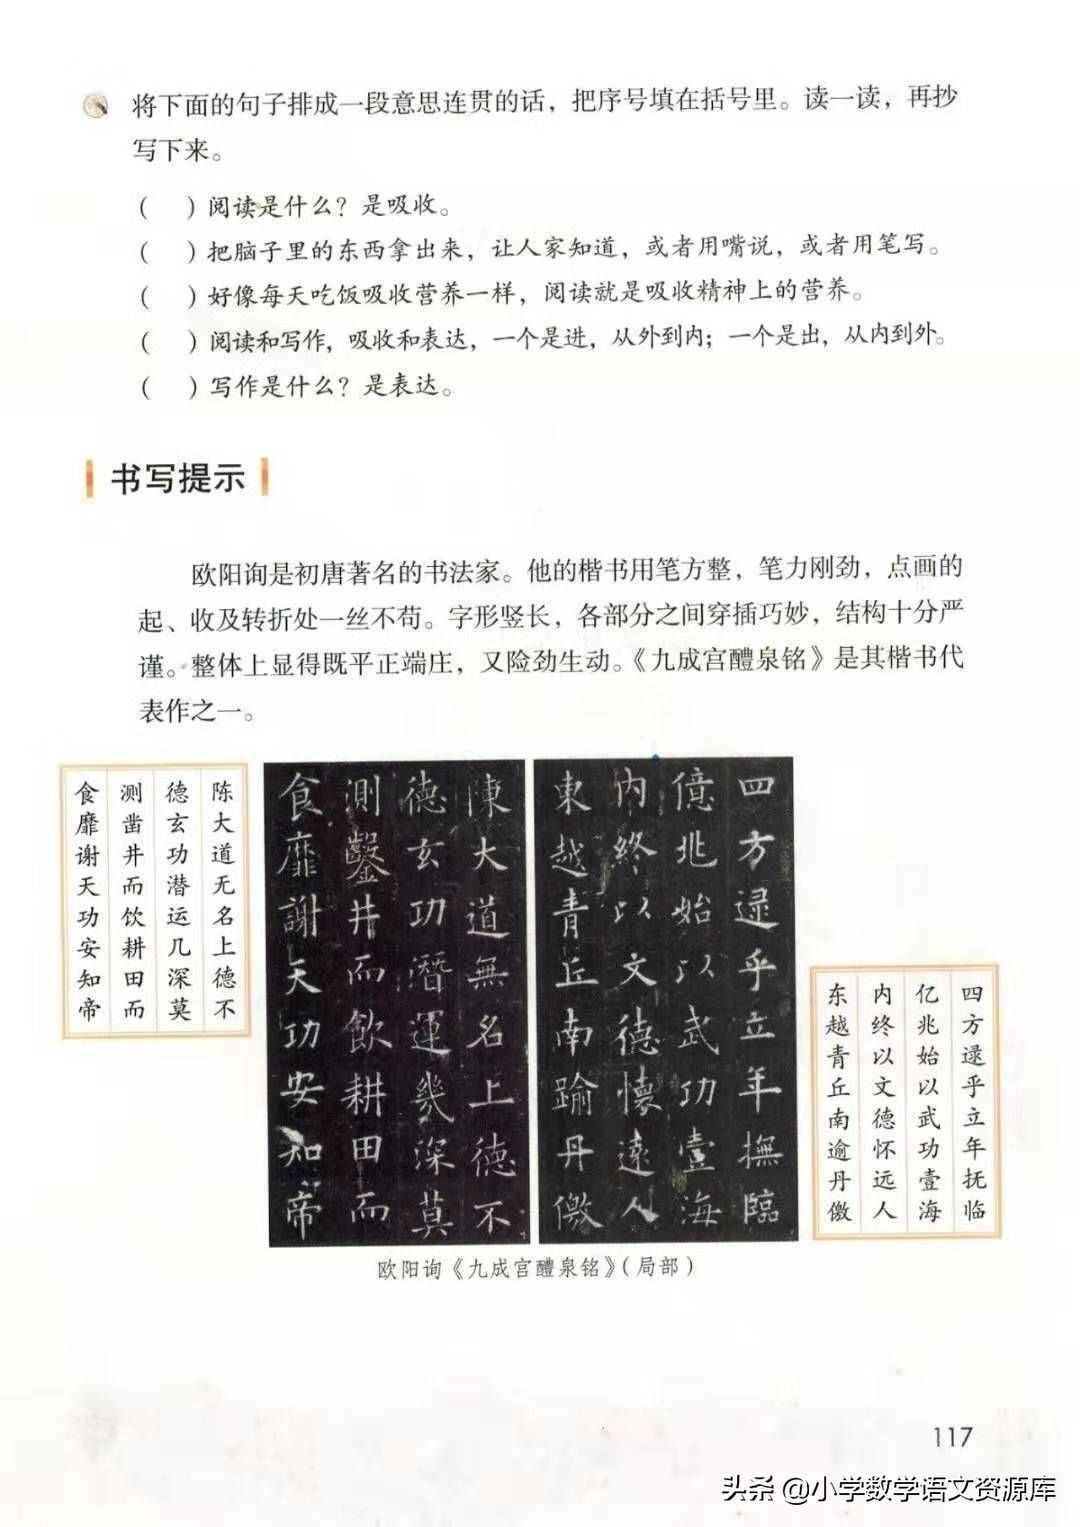 将下面的句子排成一段意思连贯的话，把序号填在括号里。读一读，再抄
写下来。
(　　)阅读是什么？是吸收。
(　　)把脑子里的东西拿出来，让人家知道，或者用嘴说，或者用笔写。
(　　)好像每天吃饭吸收营养一样，阅读就是吸收精神上的营养。
(　　)阅读和写作，吸收和表达，一个是进，从外到内；一个是出，从内到外。
(　　)写作是什么？是表达。
书写提示
欧阳询是初唐著名的书法家。他的楷书用笔方整，笔力刚劲，点画的
起、收及转折处一丝不苟。字形竖长，各部分之间穿插巧妙，结构十分严
谨。整体上显得既平正端庄，又险劲生动。《九成宫醴泉铭》是其楷书代
表作之一。
四方逯乎立年抚临
亿兆始以武功壹海
内终以文德怀远人
东越青丘南逾丹儌
四方逯乎立年撫臨
億兆始以武功壹海
内終以文德懷遠人
東越青丘南踰丹儌
陳大道無名上德不
德玄功潛運幾深莫
測鑿井而飲耕田而
食靡謝天功安知帝
陈大道无名上德不
德玄功潜运几深莫
测凿井而饮耕田而
食靡谢天功安知帝
欧阳询《九成宫醴泉铭》（局部）
117
头条 @小学数学语文资源库